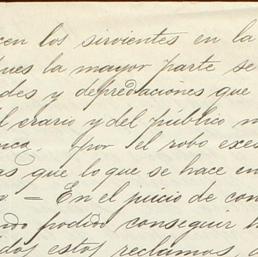 cen los sirvientes en la
ues la mayor parte se
des y depredaciones que
l erario y del público
por el robo
es que lo que se hace en
o = En el juicio de con
ndo podido conseguir
dos estos reclamos,